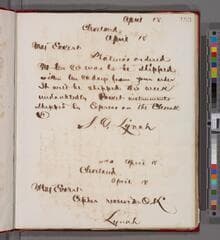 April 18
Cleveland
April 18
Maj Eckert
Platina ordered
to be shipped
with in 20 days from your order
It will be shipped this week
undoubtedly instruments
shipped by Express on the
J. C. Lynch
April 18
Cleveland
April 18
Maj Eckert
Cipher received O.K
Lynch